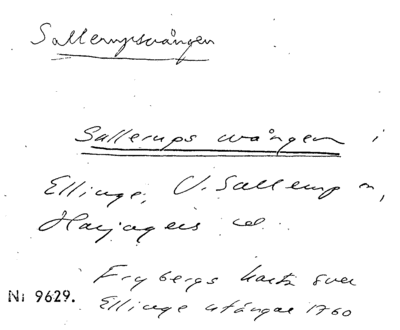 Sallerupsvången
Sallerups wången i
Ellinge, V. Sallerup sn,
Harjagers hd.
Frybergs karta över
Ellinge utängar 1760
Ni 9629.